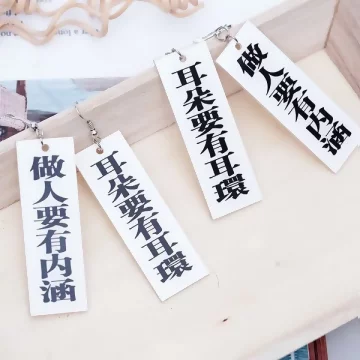 做人要有內涵
耳朵要有耳環
耳朵要有耳環
做人要有內涵